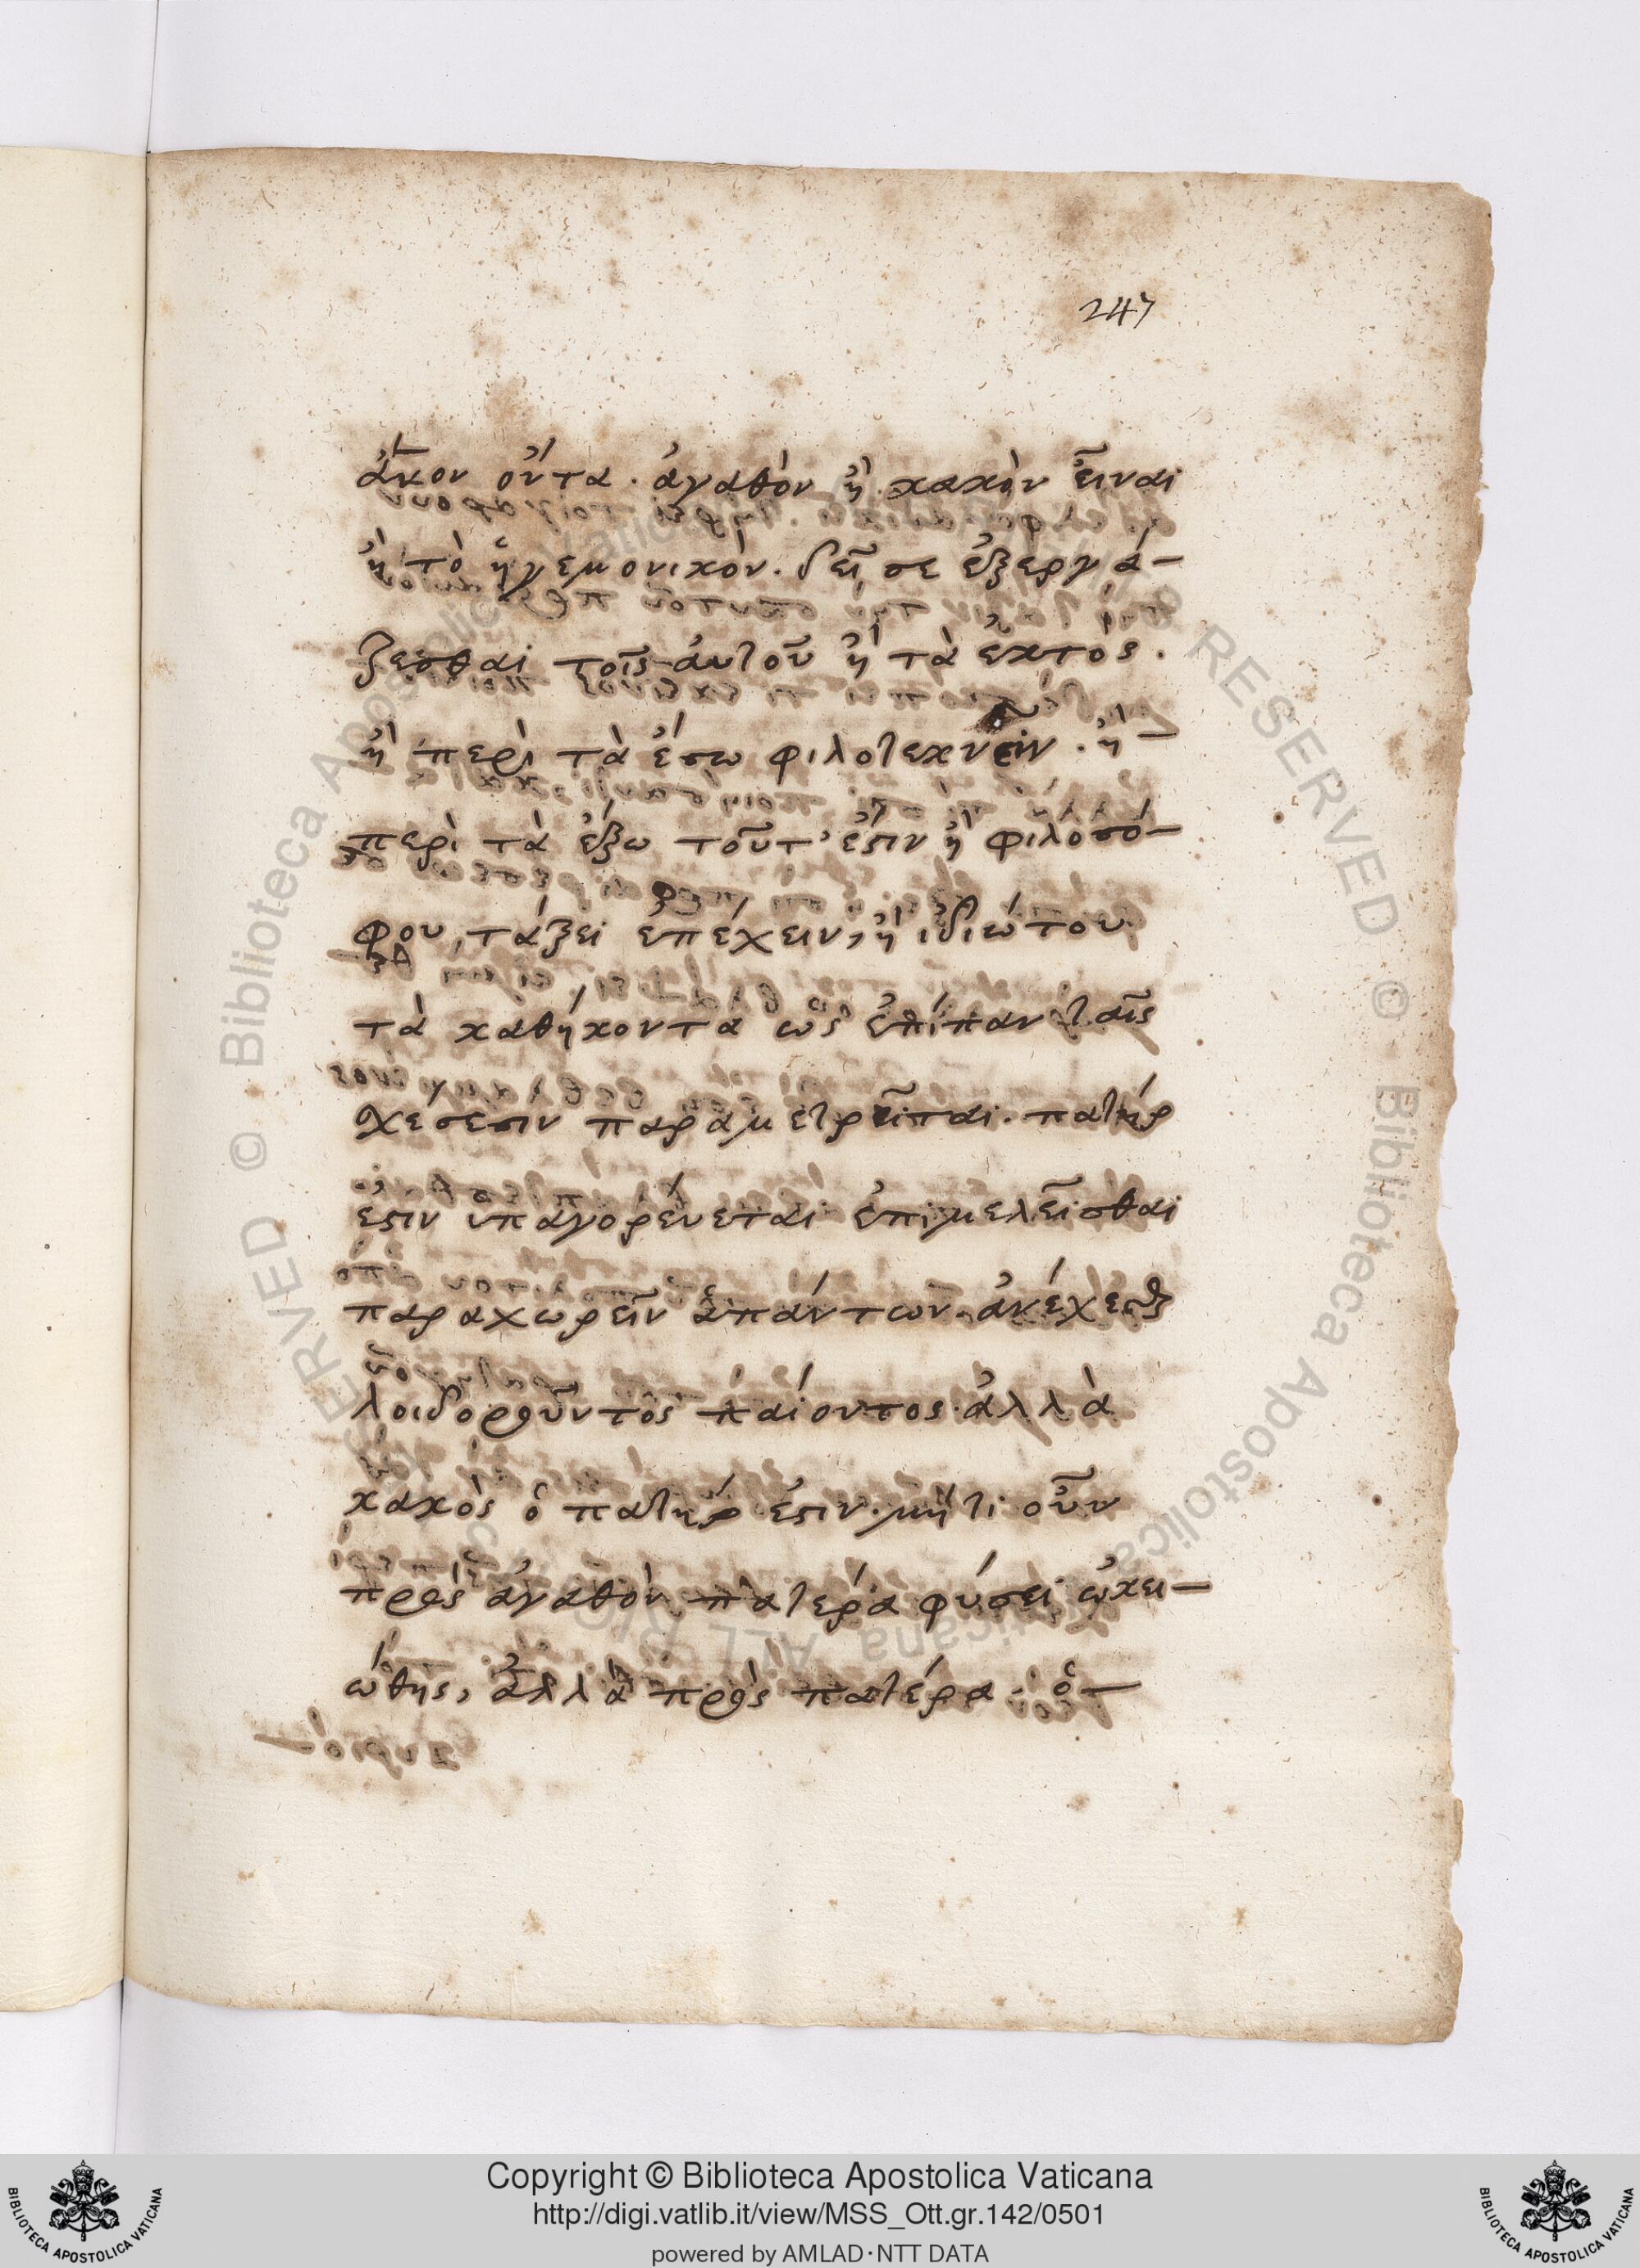 247
ἄ̓κον ὄντα. ἀγαθὸν ἢ κακὸν εἶναι
ἢ τὸ ἡγεμονικὸν. δεῖ σε ἐξεργά-
ζεσθαι τοῖς αὐτοῦ ἢ τὰ ἐκτὸς.
ἢ περὶ τὰ ἔσω φιλοτεχνεῖν. ἢ-
περὶ τὰ ἔξω τοῦτ' ἔστιν ἢ φιλοσό-
φου, τάξει ἐπέχειν, ἢ ἰδιώτου.
τὰ καθήκοντα ὡς ἐπίπαν ταῖς
σχέσεσιν παραμετρεῖται. πατήρ
ἐστιν ὑπαγορεύεται ἐπιμελεῖσθαι
παραχωρεῖν ἁπάντων. ἀνέχεσθαι
λοιδοροῦντος παίοντος. ἀλλὰ
κακὸς ὁ πατήρ ἐστιν. μήτι οὖν
πρὸς ἀγαθὸν πατέρα φύσει ὠκει-
ώθης, ἀλλὰ πρὸς πατέρα. ὁ-
© Biblioteca Apostolica Vaticana ALL RIGHTS RESERVED
© Biblioteca Apostolica Vaticana ALL RIGHTS RESERVED
Copyright © Biblioteca Apostolica Vaticana
http://digi.vatlib.it/view/MSS_Ott.gr.142/0501
powered by AMLAD·NTT DATA
BIBLIOTECA APOSTOLICA VATICANA
BIBLIOTECA APOSTOLICA VATICANA